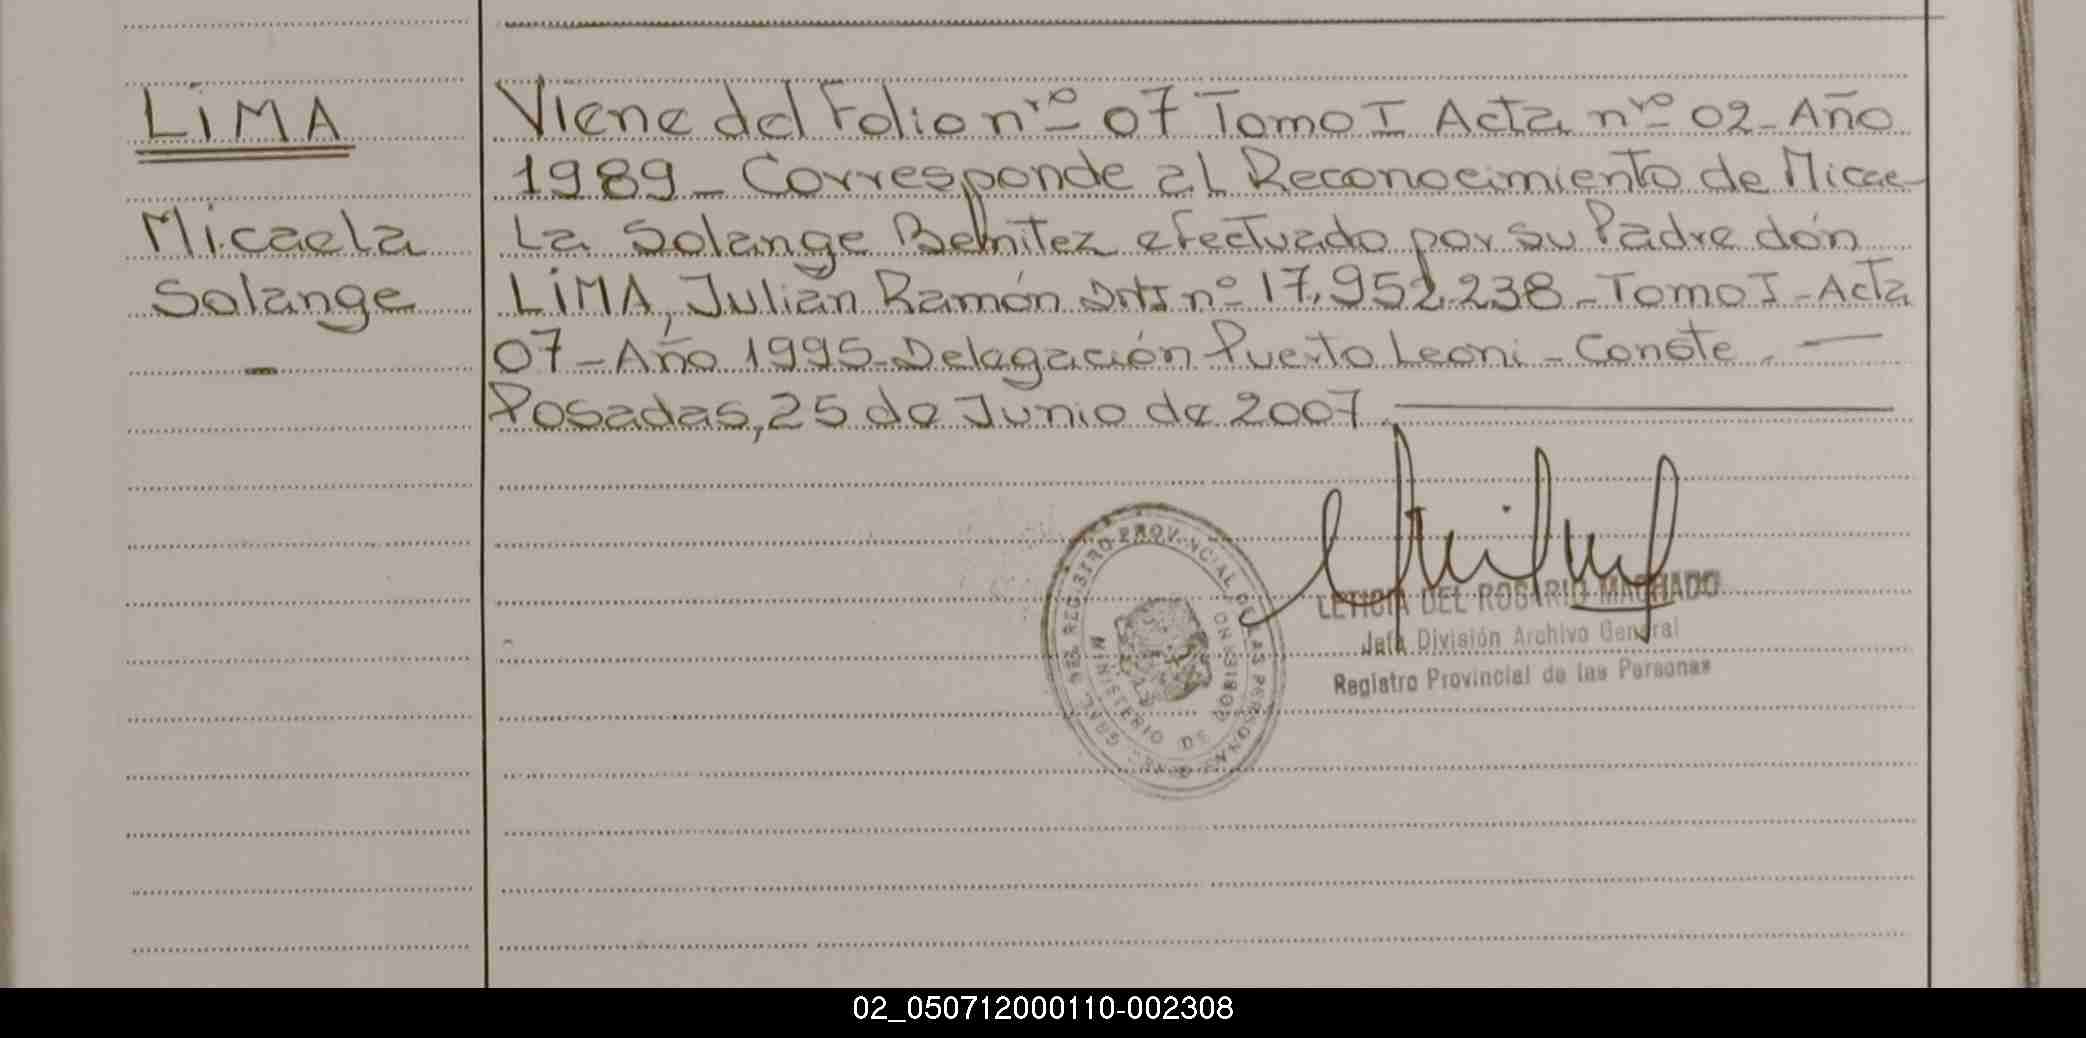 LiMA
Micaela
Solange
Viene del Folio nro 07 Tomo I Acta nro 02 - Año
1989 - Corresponde al Reconocimiento de Micae
La Solange Benitez efectuado por su Padre dón
LiMA, Julián Ramón nº 17.952.238 - Tomo I - Acta
07 - Año 1995 - Delagación Puerto Leoni - Conste. —
Posadas, 25 de Junio de 2007.
GRAL. DEL REGISTRO PROVINCIAL DE LAS PERSONAS
MINISTERIO DE GOBIERNO
LETICIA DEL ROSARIO MACHADO
Jefa División Archivo General
Registro Provincial de las Personas
02_050712000110-002308